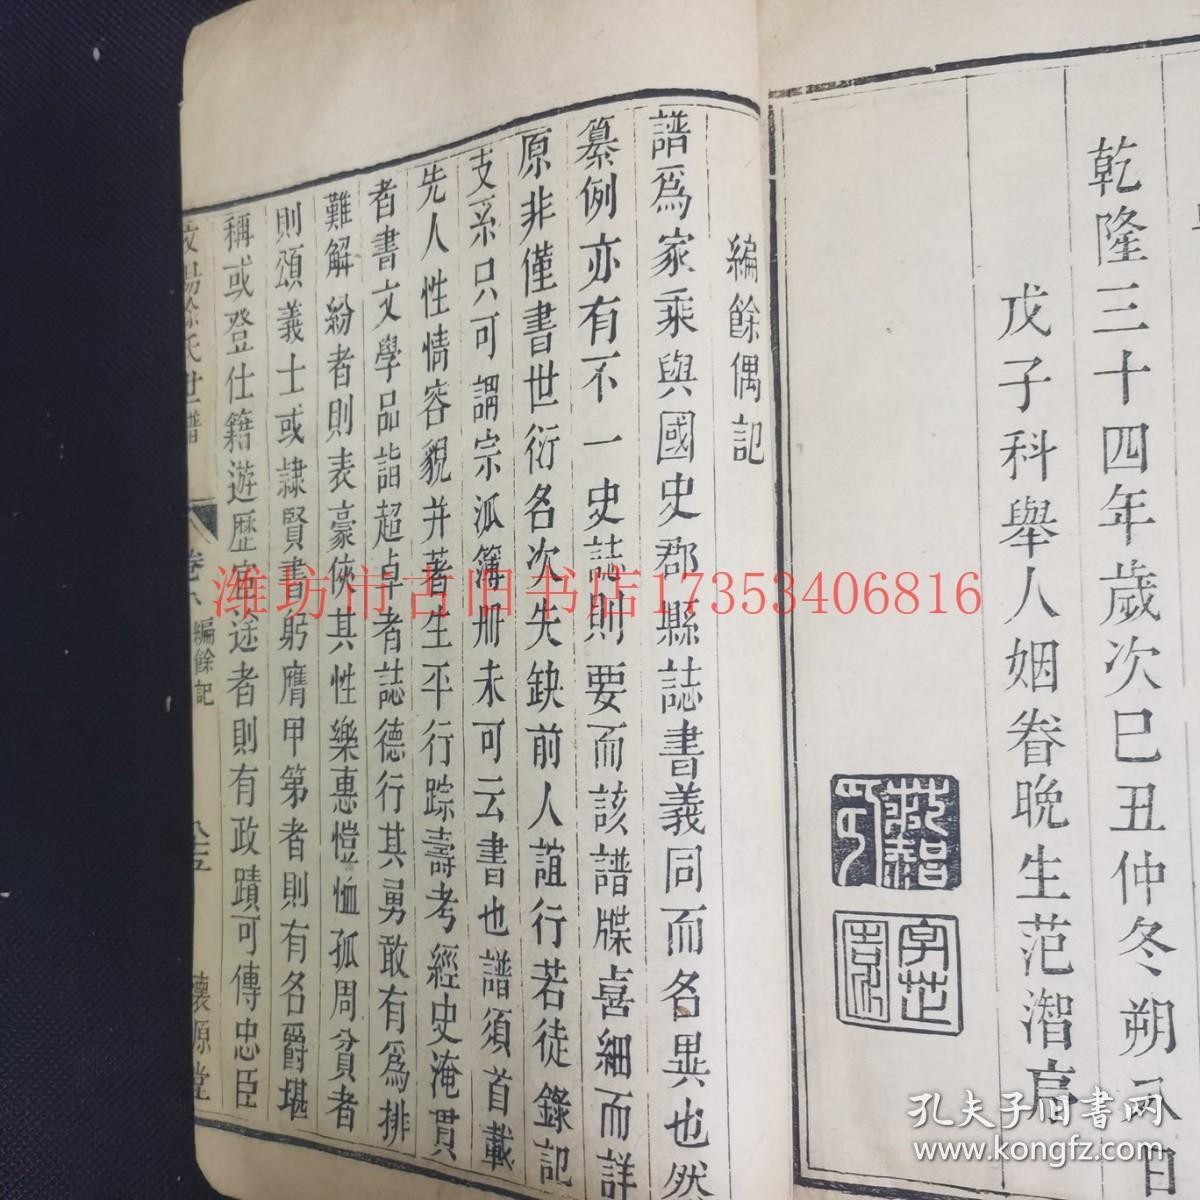 乾隆三十四年歲次巳丑仲冬朔又日
戊子科舉人姻眷晚生范潛亨
編餘偶記
譜爲家乘與國史郡縣誌書義同而名異也然
纂例亦有不一史誌則要而該譜牒喜細而詳
原非僅書世衍名次失缺前人誼行若徒錄記
支系只可謂宗派簿冊未可云書也譜須首載
先人性情容貌并著生平行踪壽考經史淹貫
者書文學品詣超卓者誌德行其勇敢有爲排
難解紛者則表豪俠其性樂惠愷恤孤周貧者
則頌義士或隷賢書躬膺甲第者則有名爵堪
稱或登仕籍遊歷宦途者則有政蹟可傳忠臣
陽徐氏世譜
卷六
編餘記
八五
懷原堂
潍坊市古旧书店17353406816
孔夫子旧书网
www.kongfz.com